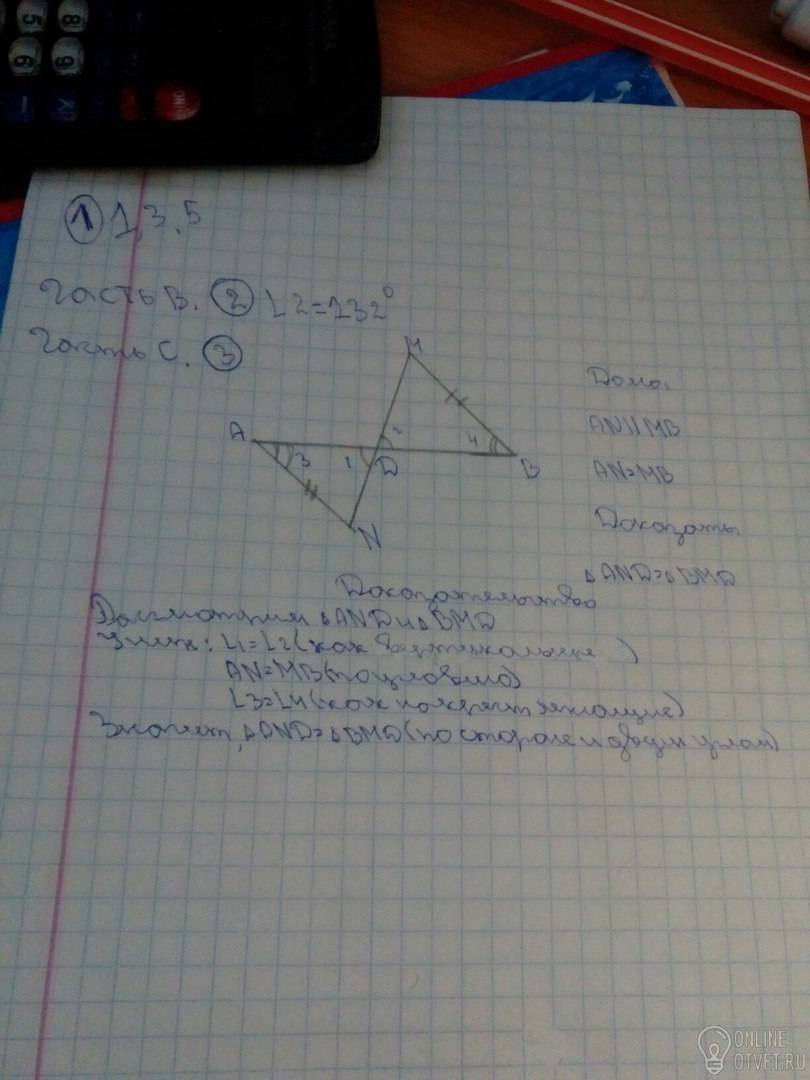 ① 1, 3, 5
Часть B. ② ∠2=132°
Часть C. ③
M
A
3
1
2
4
D
B
N
Дано:
AN||MB
AN=MB
Доказать
△AND=△BMD
Доказательство
Рассмотрим △AND и △BMD
∠1=∠2 (как вертикальные)
AN=MB (по условию)
∠3=∠4 (как накрест лежащие)
Значит, △AND=△BMD (по стороне и двум углам)
ONLINE
OTVET.RU
5
8
6
9